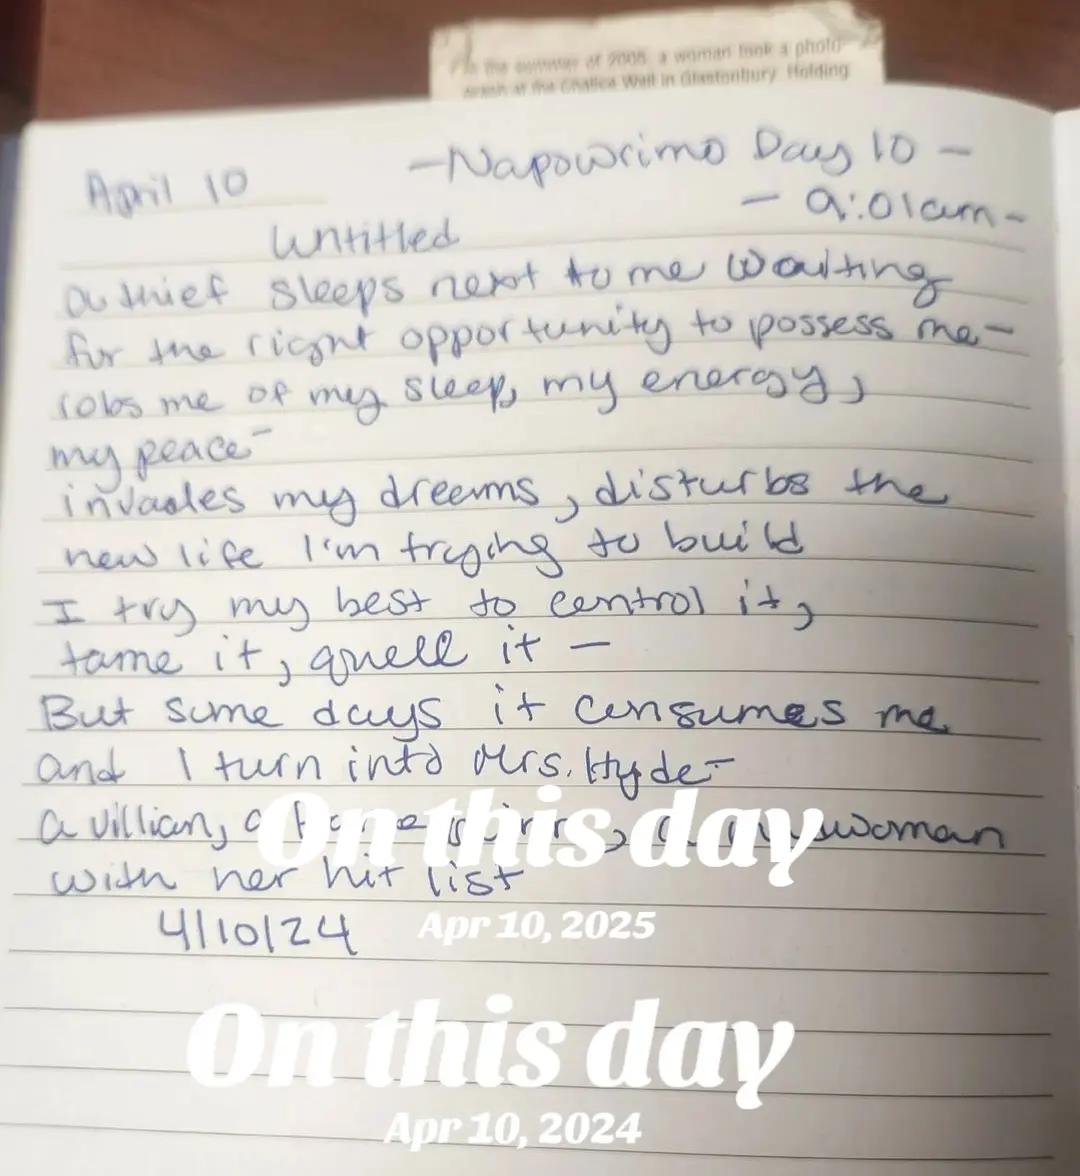 In the summer of 2005, a woman took a photo-
graph at the Chalice Well in Glastonbury. Holding
April 10
-Napowrimo Day 10-
- 9:01am-
Untitled
a thief sleeps next to me waiting
for the right opportunity to possess me-
robs me of my sleep, my energy,
my peace-
invades my dreams, disturbs the
new life I'm trying to build
I try my best to control it,
tame it, quell it -
But some days it consumes me
and I turn into Mrs. Hyde-
a villian, a, a woman
with her hit list
4/10/24
On this day
Apr 10, 2025
On this day
Apr 10, 2024